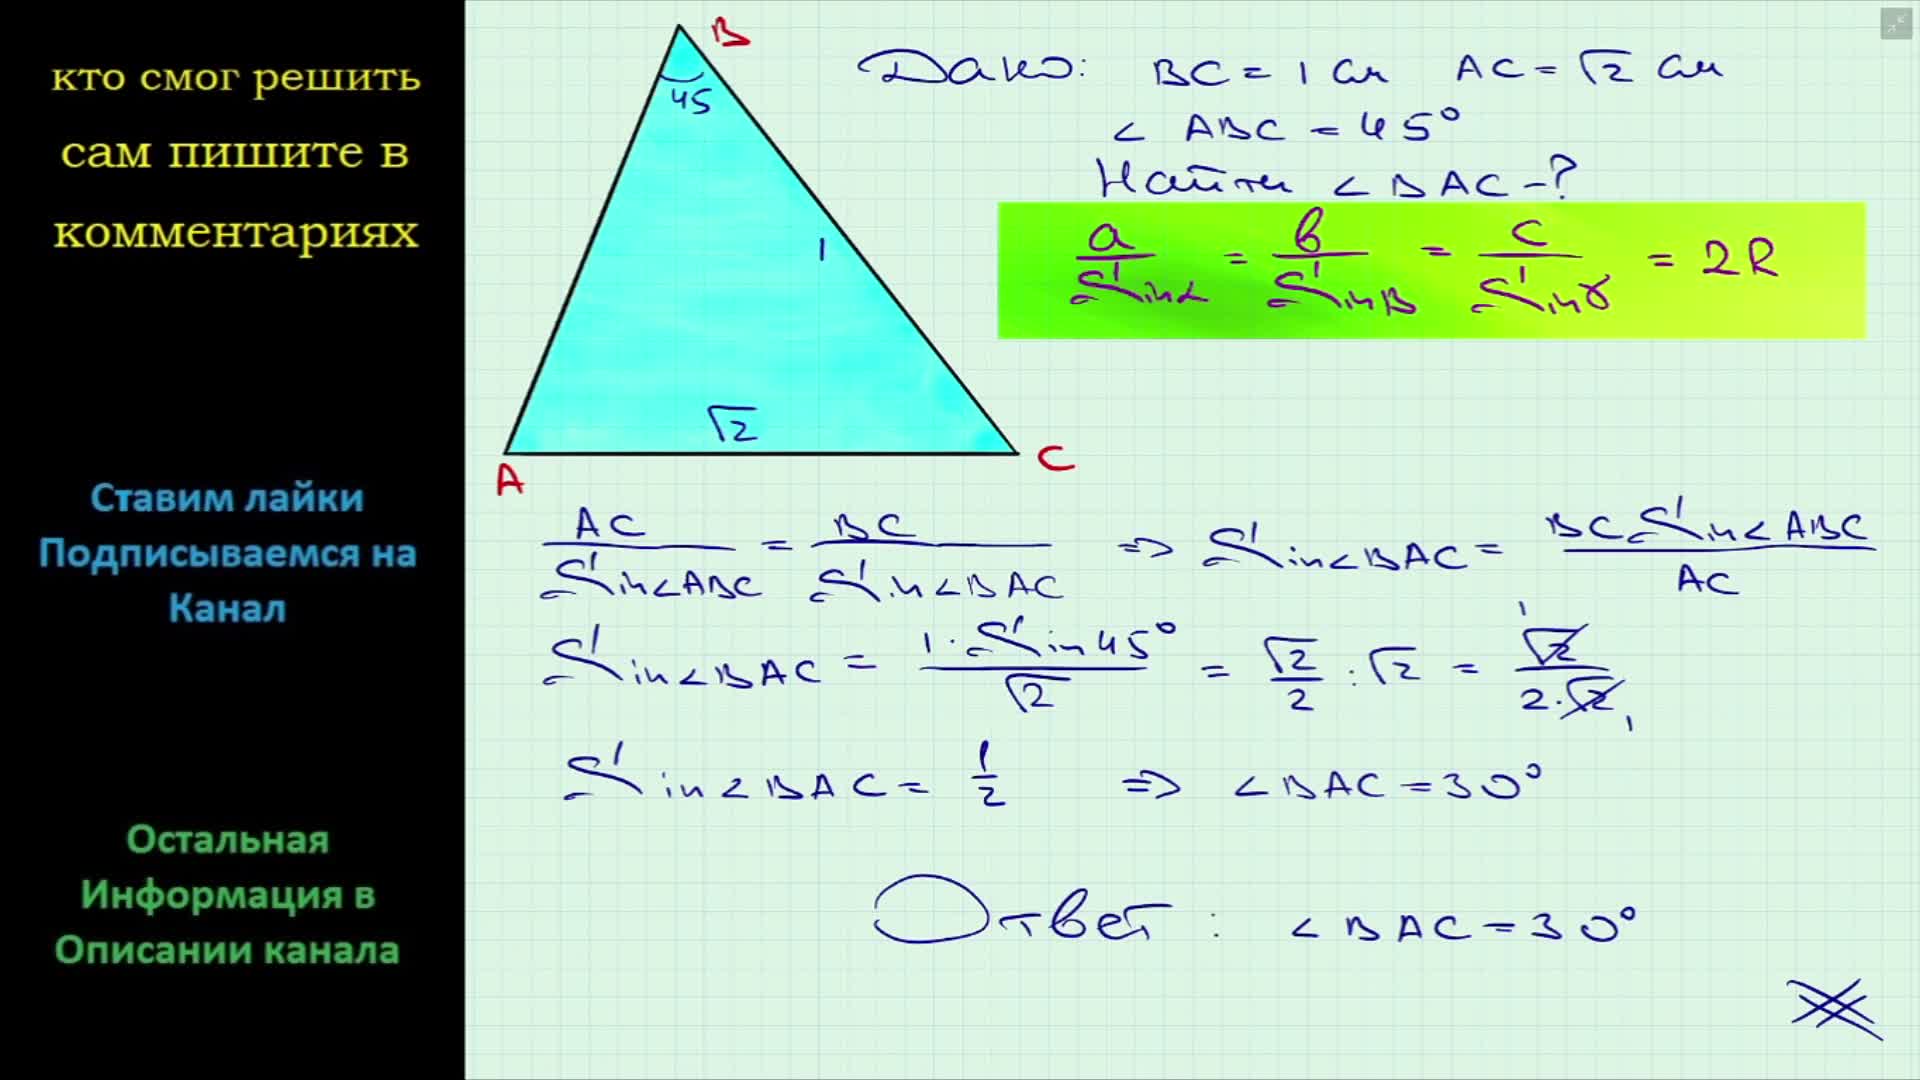 кто смог решить
сам пишите в
комментариях
Ставим лайки
Подписываемся на
Канал
Остальная
Информация в
Описании канала
B
45
1
√2
A
C
Дано: BC = 1 см AC = √2 см
∠ ABC = 45°
Найти ∠ BAC - ?
a/Sin α = b/Sin B = c/Sin γ = 2R
AC/Sin∠ABC = BC/Sin∠BAC => Sin∠BAC = BC Sin∠ABC/AC
Sin∠BAC = 1·Sin 45°/√2 = √2/2 : √2 = √2 1/2·√2 1
Sin∠BAC = 1/2 => ∠BAC = 30°
Ответ : ∠ BAC = 30°